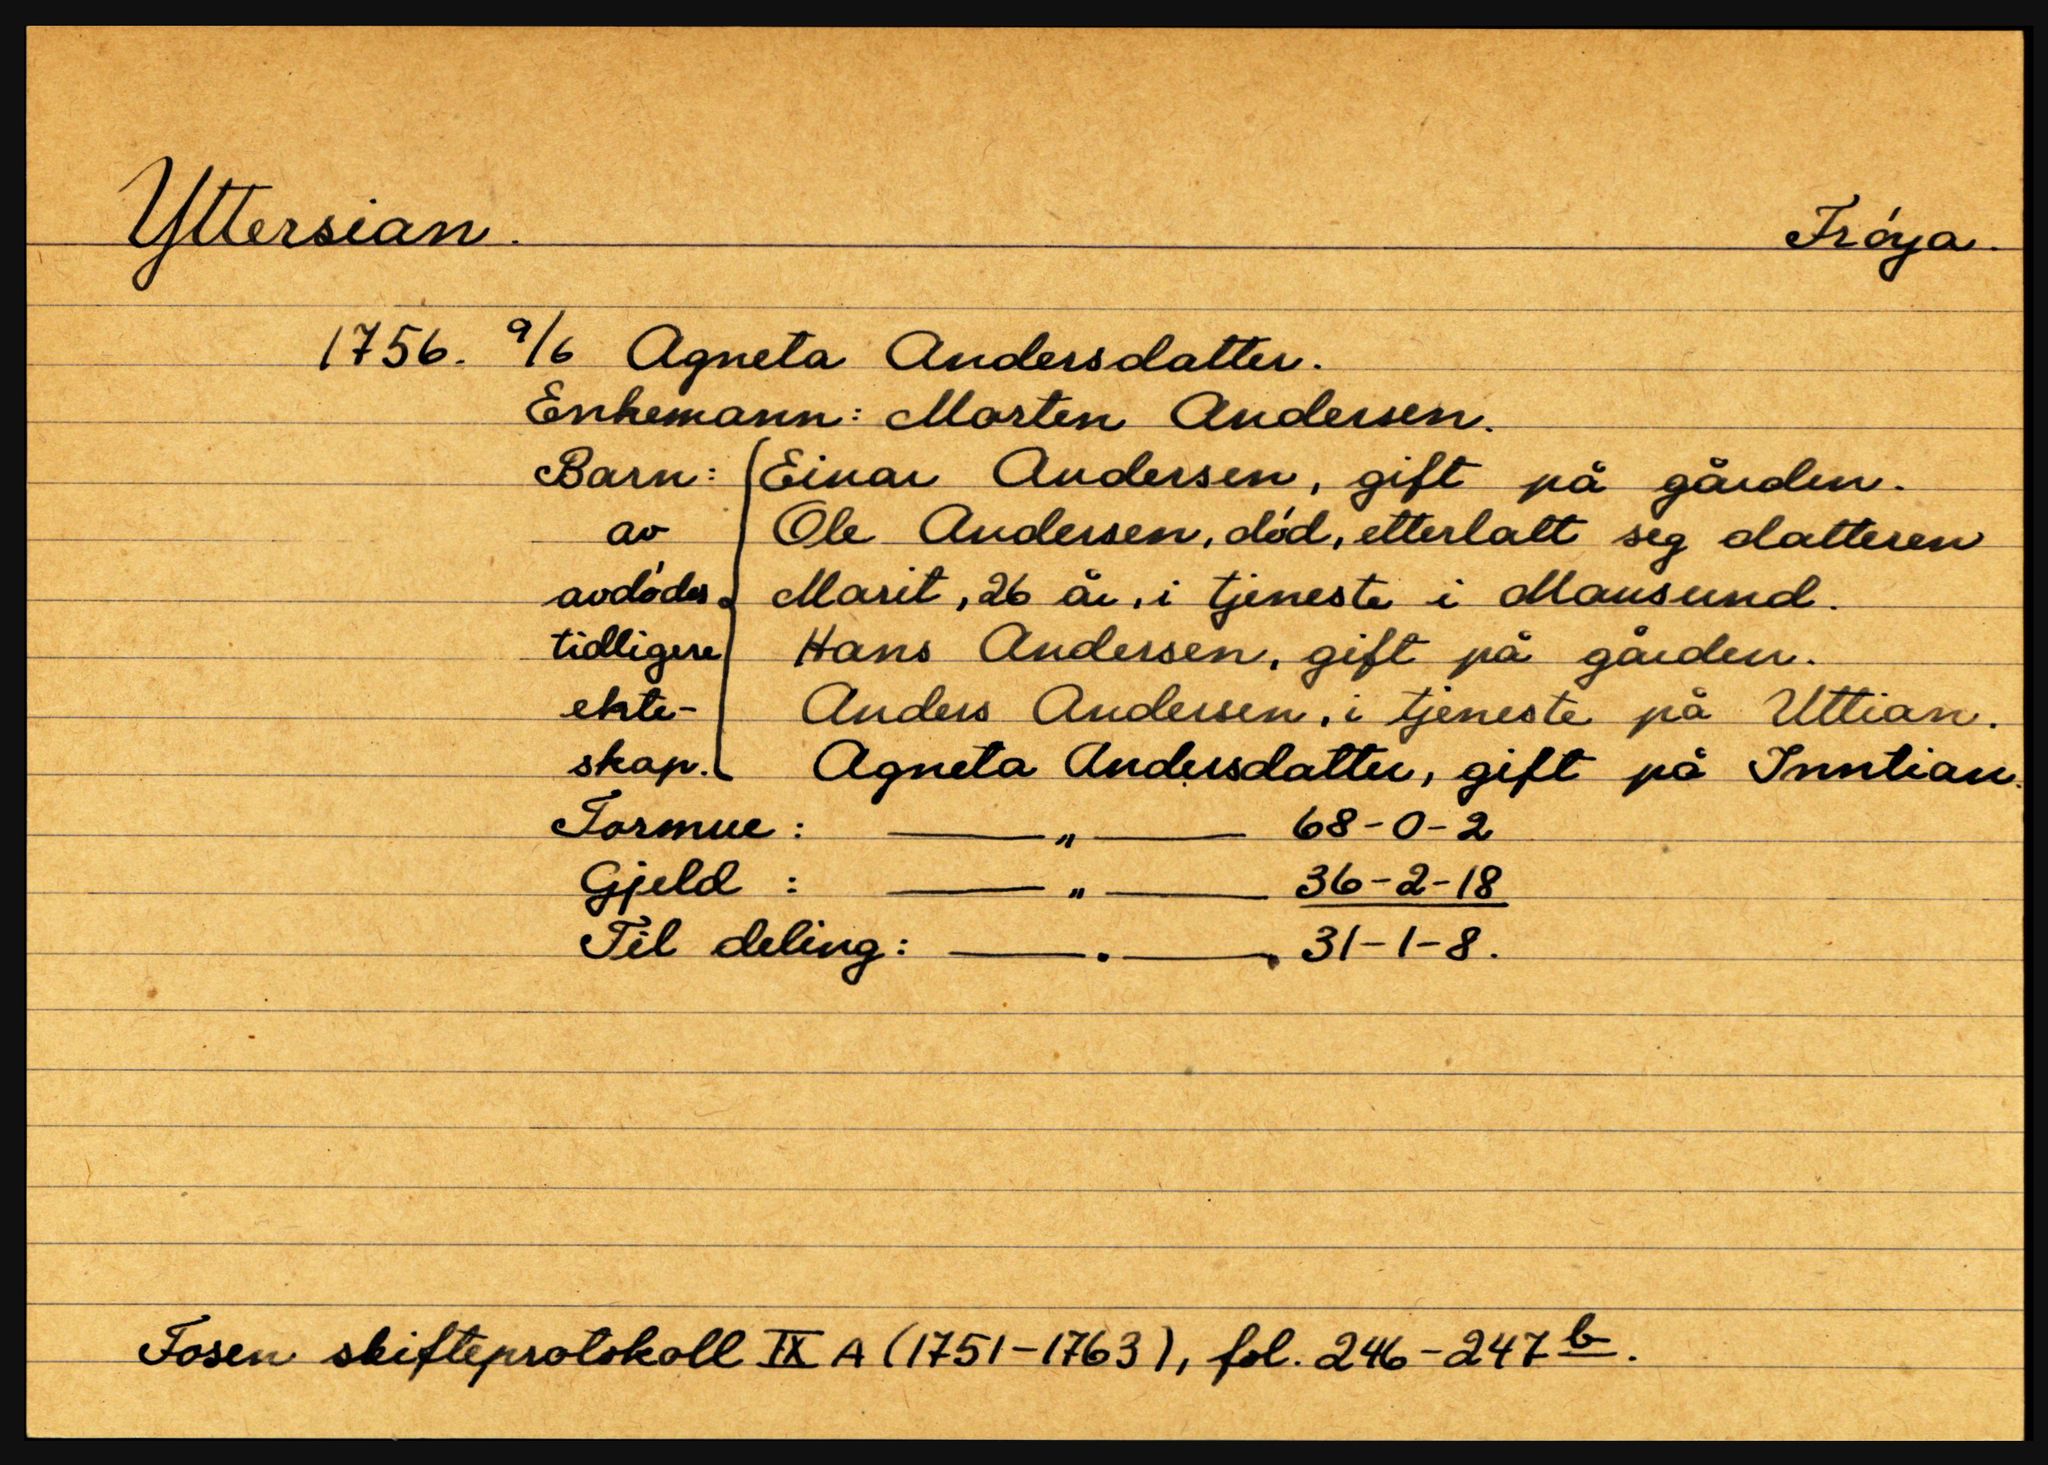 Yttersian. Frøya.
1756. 9/6 Agneta Andersdatter.
Enkemann: Morten Andersen.
Barn: Einar Andersen, gift på gården.
av Ole Andersen, død, etterlatt seg datteren
avdødes Marit, 26 år, i tjeneste i Mausund.
tidligere Hans Andersen, gift på gården.
ekte- Anders Andersen, i tjeneste på Uttian.
skap. Agneta Andersdatter, gift på Inntian.
Formue: — " — 68-0-2
Gjeld : — " — 36-2-18
Til deling: — . — . 31-1-8.
Fosen skifteprotokoll IX A (1751-1763), fol. 246-247b.